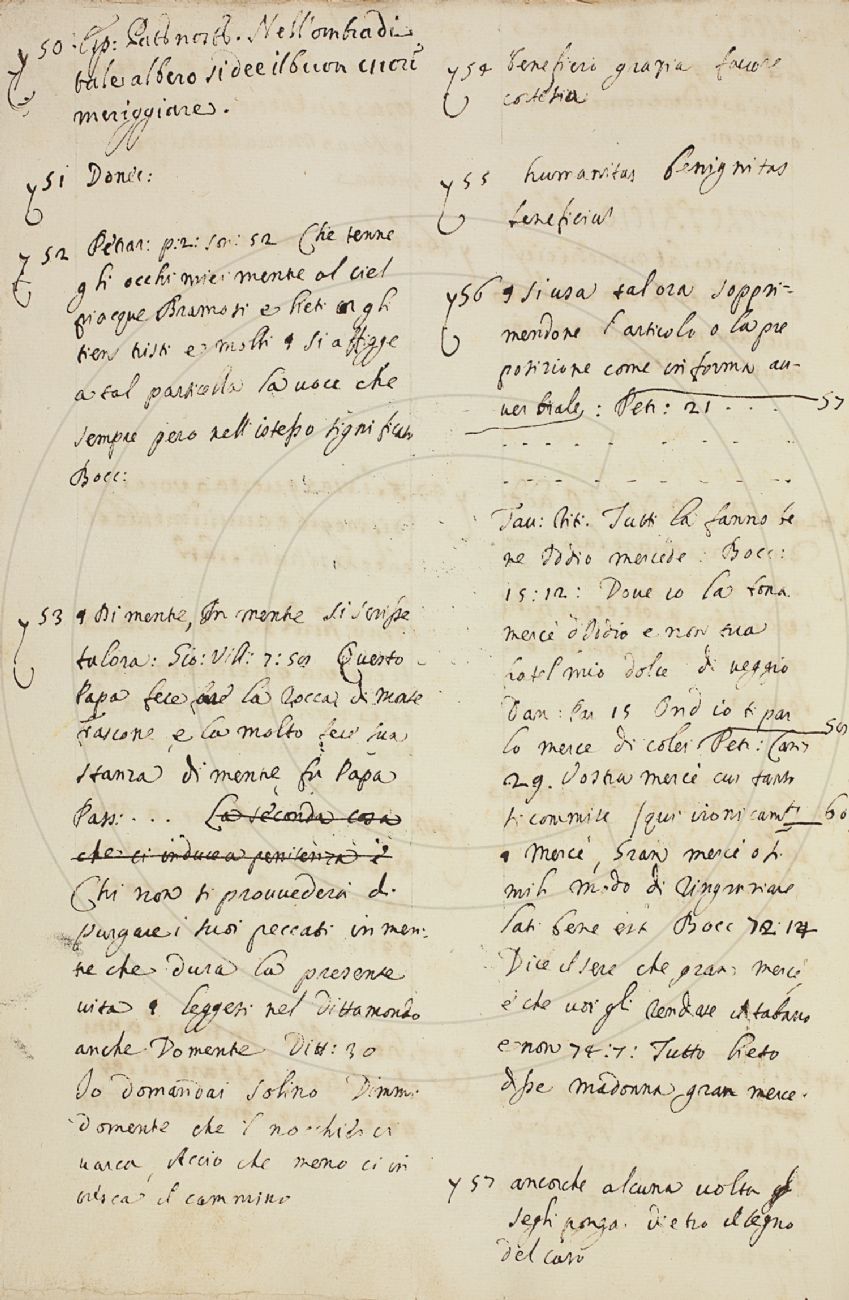 50 Esp: Patrnostr. Nell'ombra di
tale albero si dee il buon cuore
meriggiare.
51 Donec:
52 Petrar: p: 2: son: 52 Che tenne
gli occhi miei mentre al ciel
piacque Bramosi e lieti or gli
tien tristi e molli si affigge
a tal particella la voce che
sempre pero nell'istesso significato
Bocc:
53 Dimente, In mente si scrisse
talora: Gio: Vill: 7: Questo
Papa fece fare la rocca di monte
Fiascone, e la molto fece sua
stanza di mente fu Papa
Pass: . . . La seconda cosa
che ci induce a penitenza è
Chi non si provvederà di
purgare i suoi peccati in men:
te che dura la presente
vita leggesi nel Dittamondo
anche Domente Ditt: 30
Io domandai solino Dimmi
domente che
varca, Acciò che meno ci in
cresca il cammino
54 beneficio grazia favore
cortesia
55 humanitas benignitas
beneficius
56 si usa talora soppri-
mendone l'articolo o la pre
posizione come in forma au-
uerbiale: Petr: 21 . . . 57
- - - - - - - - -
- - - - - - - - -
Tau: Rit. Tutti la fanno be
ne Iddio mercede: Bocc:
15: 12: Doue io la tona
mercè d'Iddio e non tua
fratel mio dolce ti veggio
Dan: Par 15 Ond io ti par
lo merce di colei Petr: Canz
29. Vostra mercè cui tanto
si commise (qui ironicamte 60
Mercè, Gran mercè o si
mili modo di ringraziare
lati bene est Bocc 72: 14
Dice il sere che gran mercé
e che voi gli rendiate il tabarro
e non 74: 7: Tutto lieto
disse madonna gran merce.
57 ancorche alcuna volta
segli ponga dietro il segno
del caso